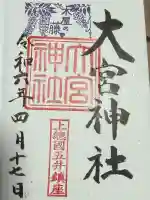 大宮神社
大宮
神社
上総國五井鎮座
令和六年四月十七日